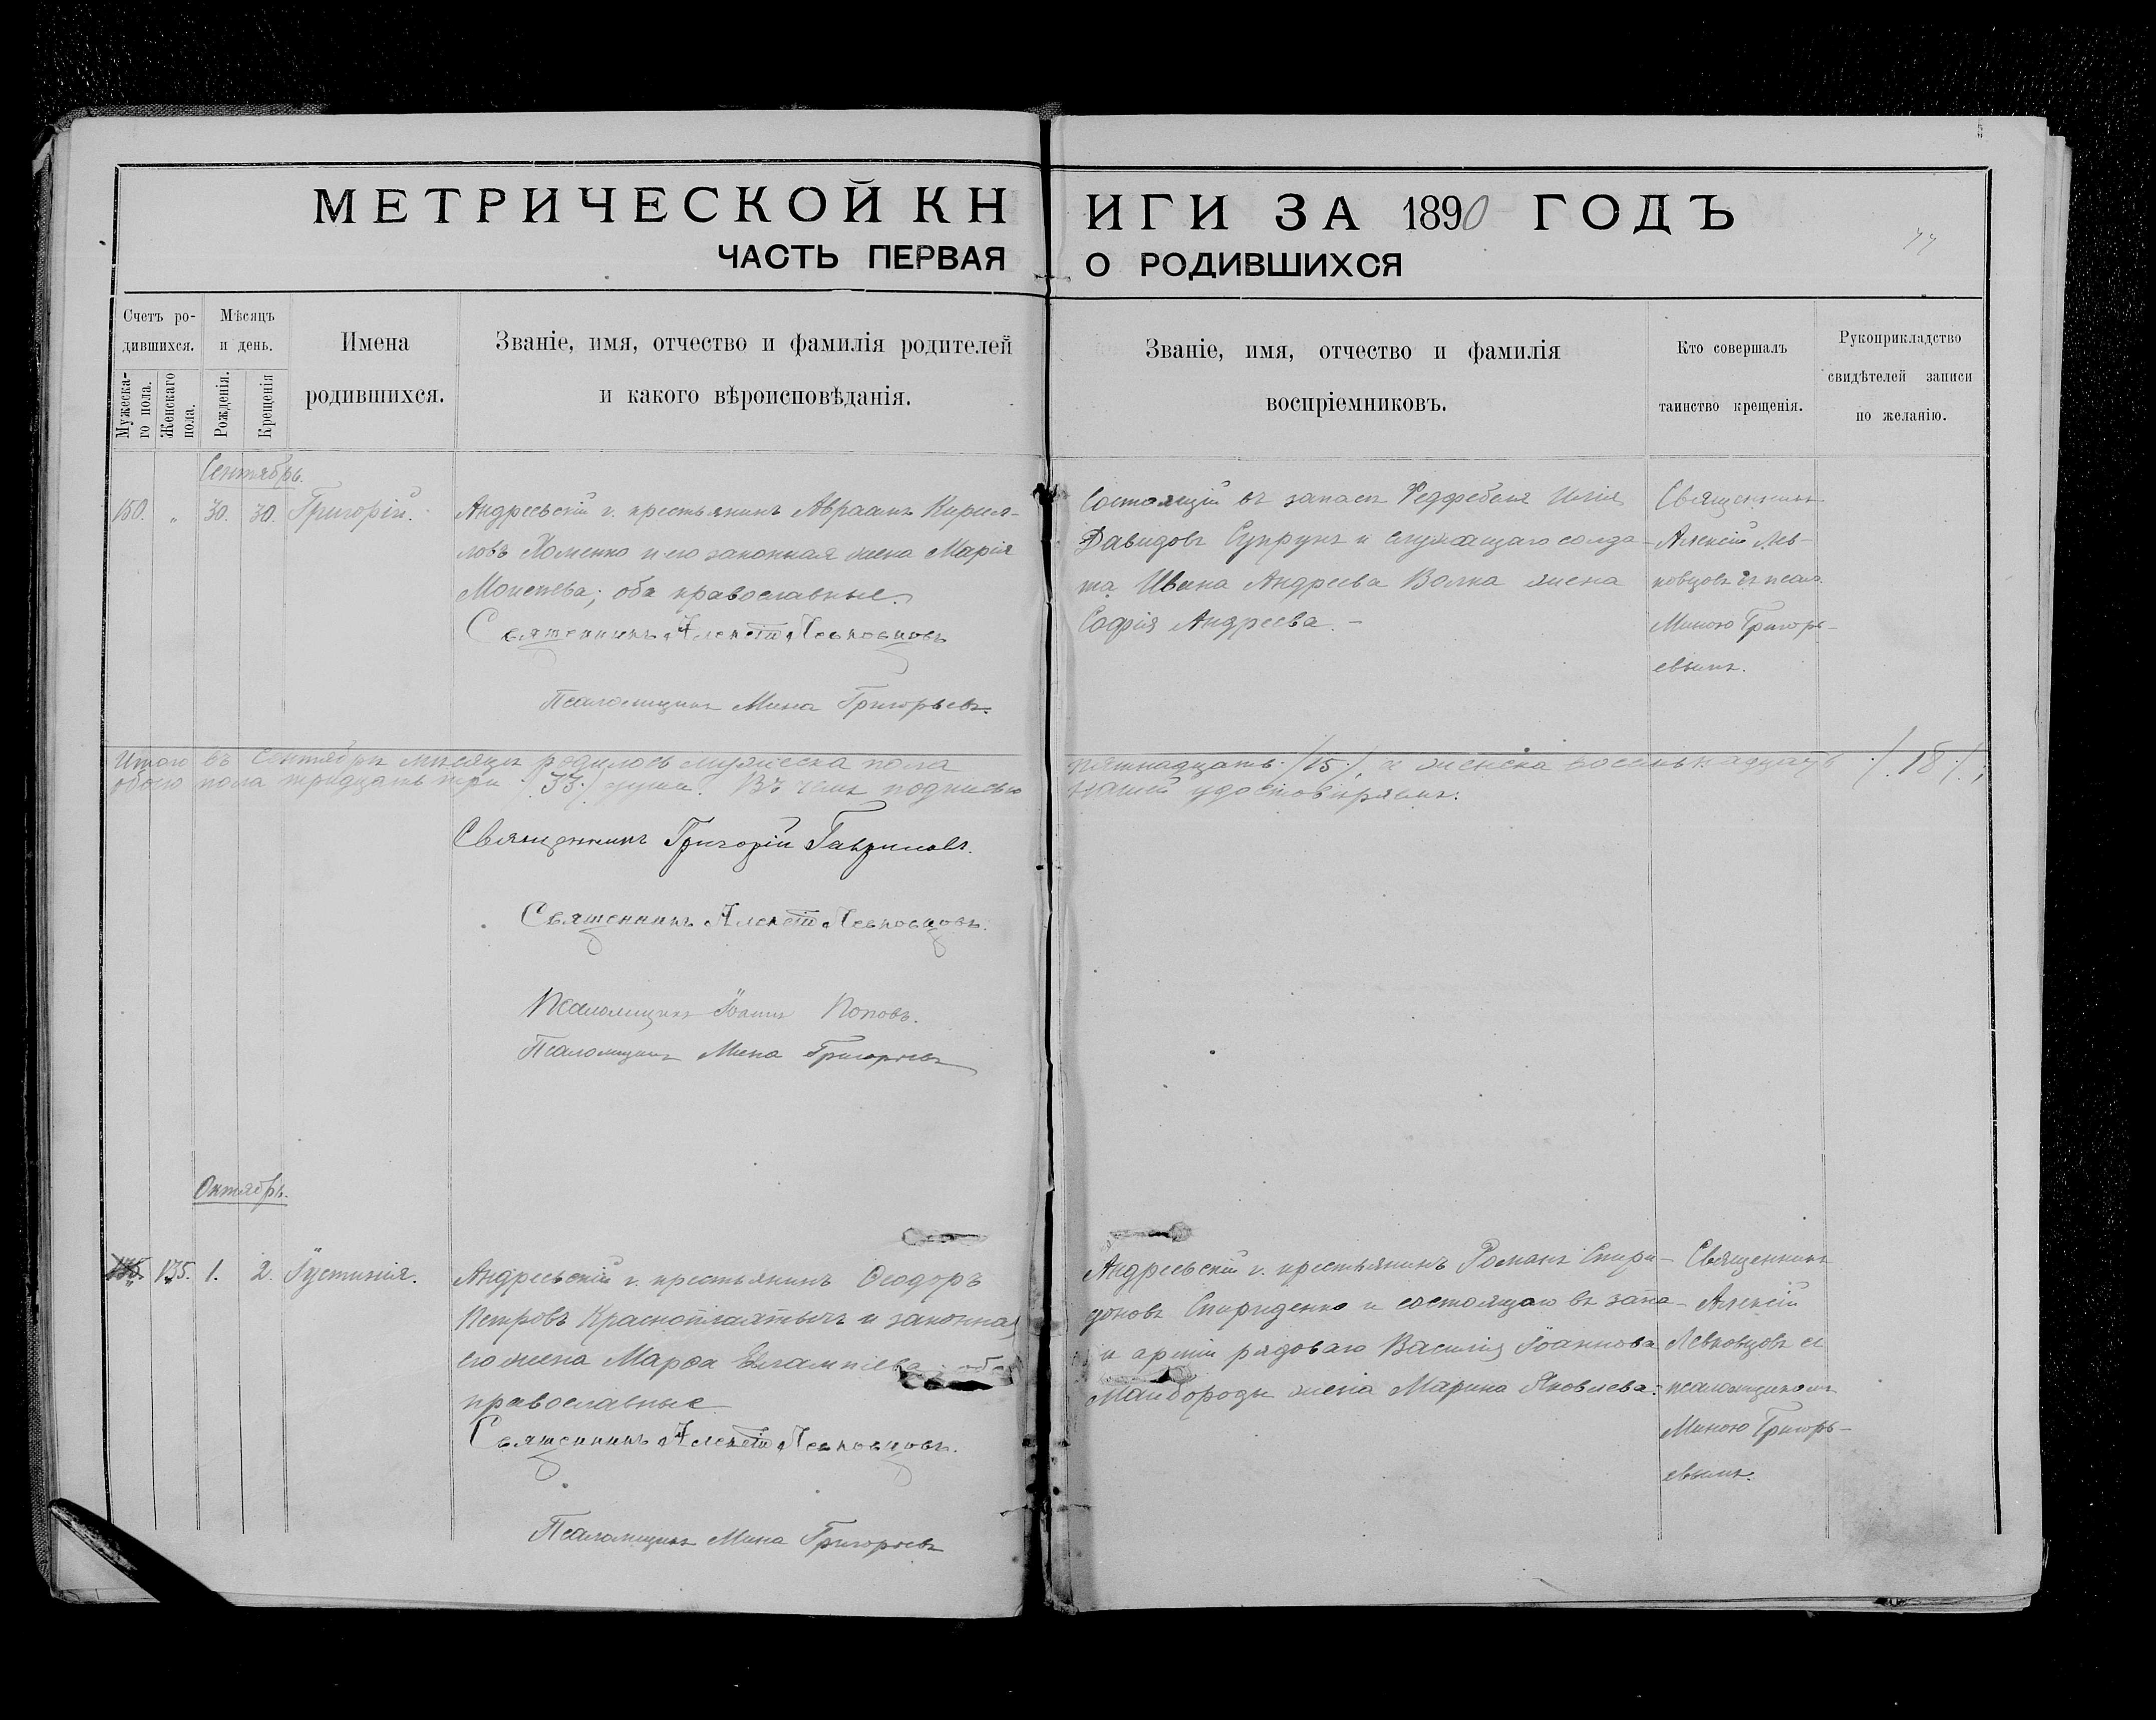 МЕТРИЧЕСКОЙ КНИГИ ЗА 1890 ГОДЪ
ЧАСТЬ ПЕРВАЯ О РОДИВШИХСЯ
77
Счетъ ро-
дившихся.
Мужеска-
го пола.
Женскаго
пола.
Мѣсяцъ
и день.
Рожденія.
Крещенія
Имена
родившихся.
Званіе, имя, отчество и фамилія родителей
и какого вѣроисповѣданія.
Званіе, имя, отчество и фамилія
воспріемниковъ.
Кто совершалъ
таинство крещенія.
Рукоприкладство
свидѣтелей записи
по желанію.
Сентябрь.
150. „ 30. 30. Григорій.
Андреевскій г. крестьянинъ Авраамъ Кирил-
ловъ Хоменко и его законная жена Марія
Моисеева; оба православные.
Священникъ Алексій Левковцовъ
Псаломщикъ Мина Григорьевъ.
Состоящій въ запасѣ Фелфебеля Илія
Давидовъ Супрунъ и служащаго солда-
та Ивана Андреева Волка жена
Софія Андреева. –
Священникъ
Алексій Лев-
ковцовъ съ псал.
Миною Григорь-
евымъ.
Итого въ Сентябрѣ мѣсяцѣ родилось мужеска пола пятнадцать ./15./, а женска восемьнадцать ./.18./.;
обоего пола тридцать три ./33./ душа. Въ чемъ подписью нашей удостовѣряемъ:
Священникъ Григорій Гавриловъ.
Священникъ Алексій Левковцовъ.
Псаломщикъ Іоаннъ Поповъ.
Псаломщикъ Мина Григорьевъ
Октябрь.
135. 1. 2. Іустинія.
Андреевскій г. крестьянинъ Ѳеодоръ
Петровъ Красноплахтычъ и законная
его жена Марѳа Евлампіева; оба
православные
Священникъ Алексій Левковцовъ.
Псаломщикъ Мина Григорьевъ
Андреевскій г. крестьянинъ Романъ Спири-
доновъ Спириденко и состоящаго въ запа-
и арміи рядоваго Василія Іоаннова
Майбороды жена Марина Яковлева:
Священникъ
Алексій
Левковцовъ съ
псаломщикомъ
Миною Григорь-
евымъ.